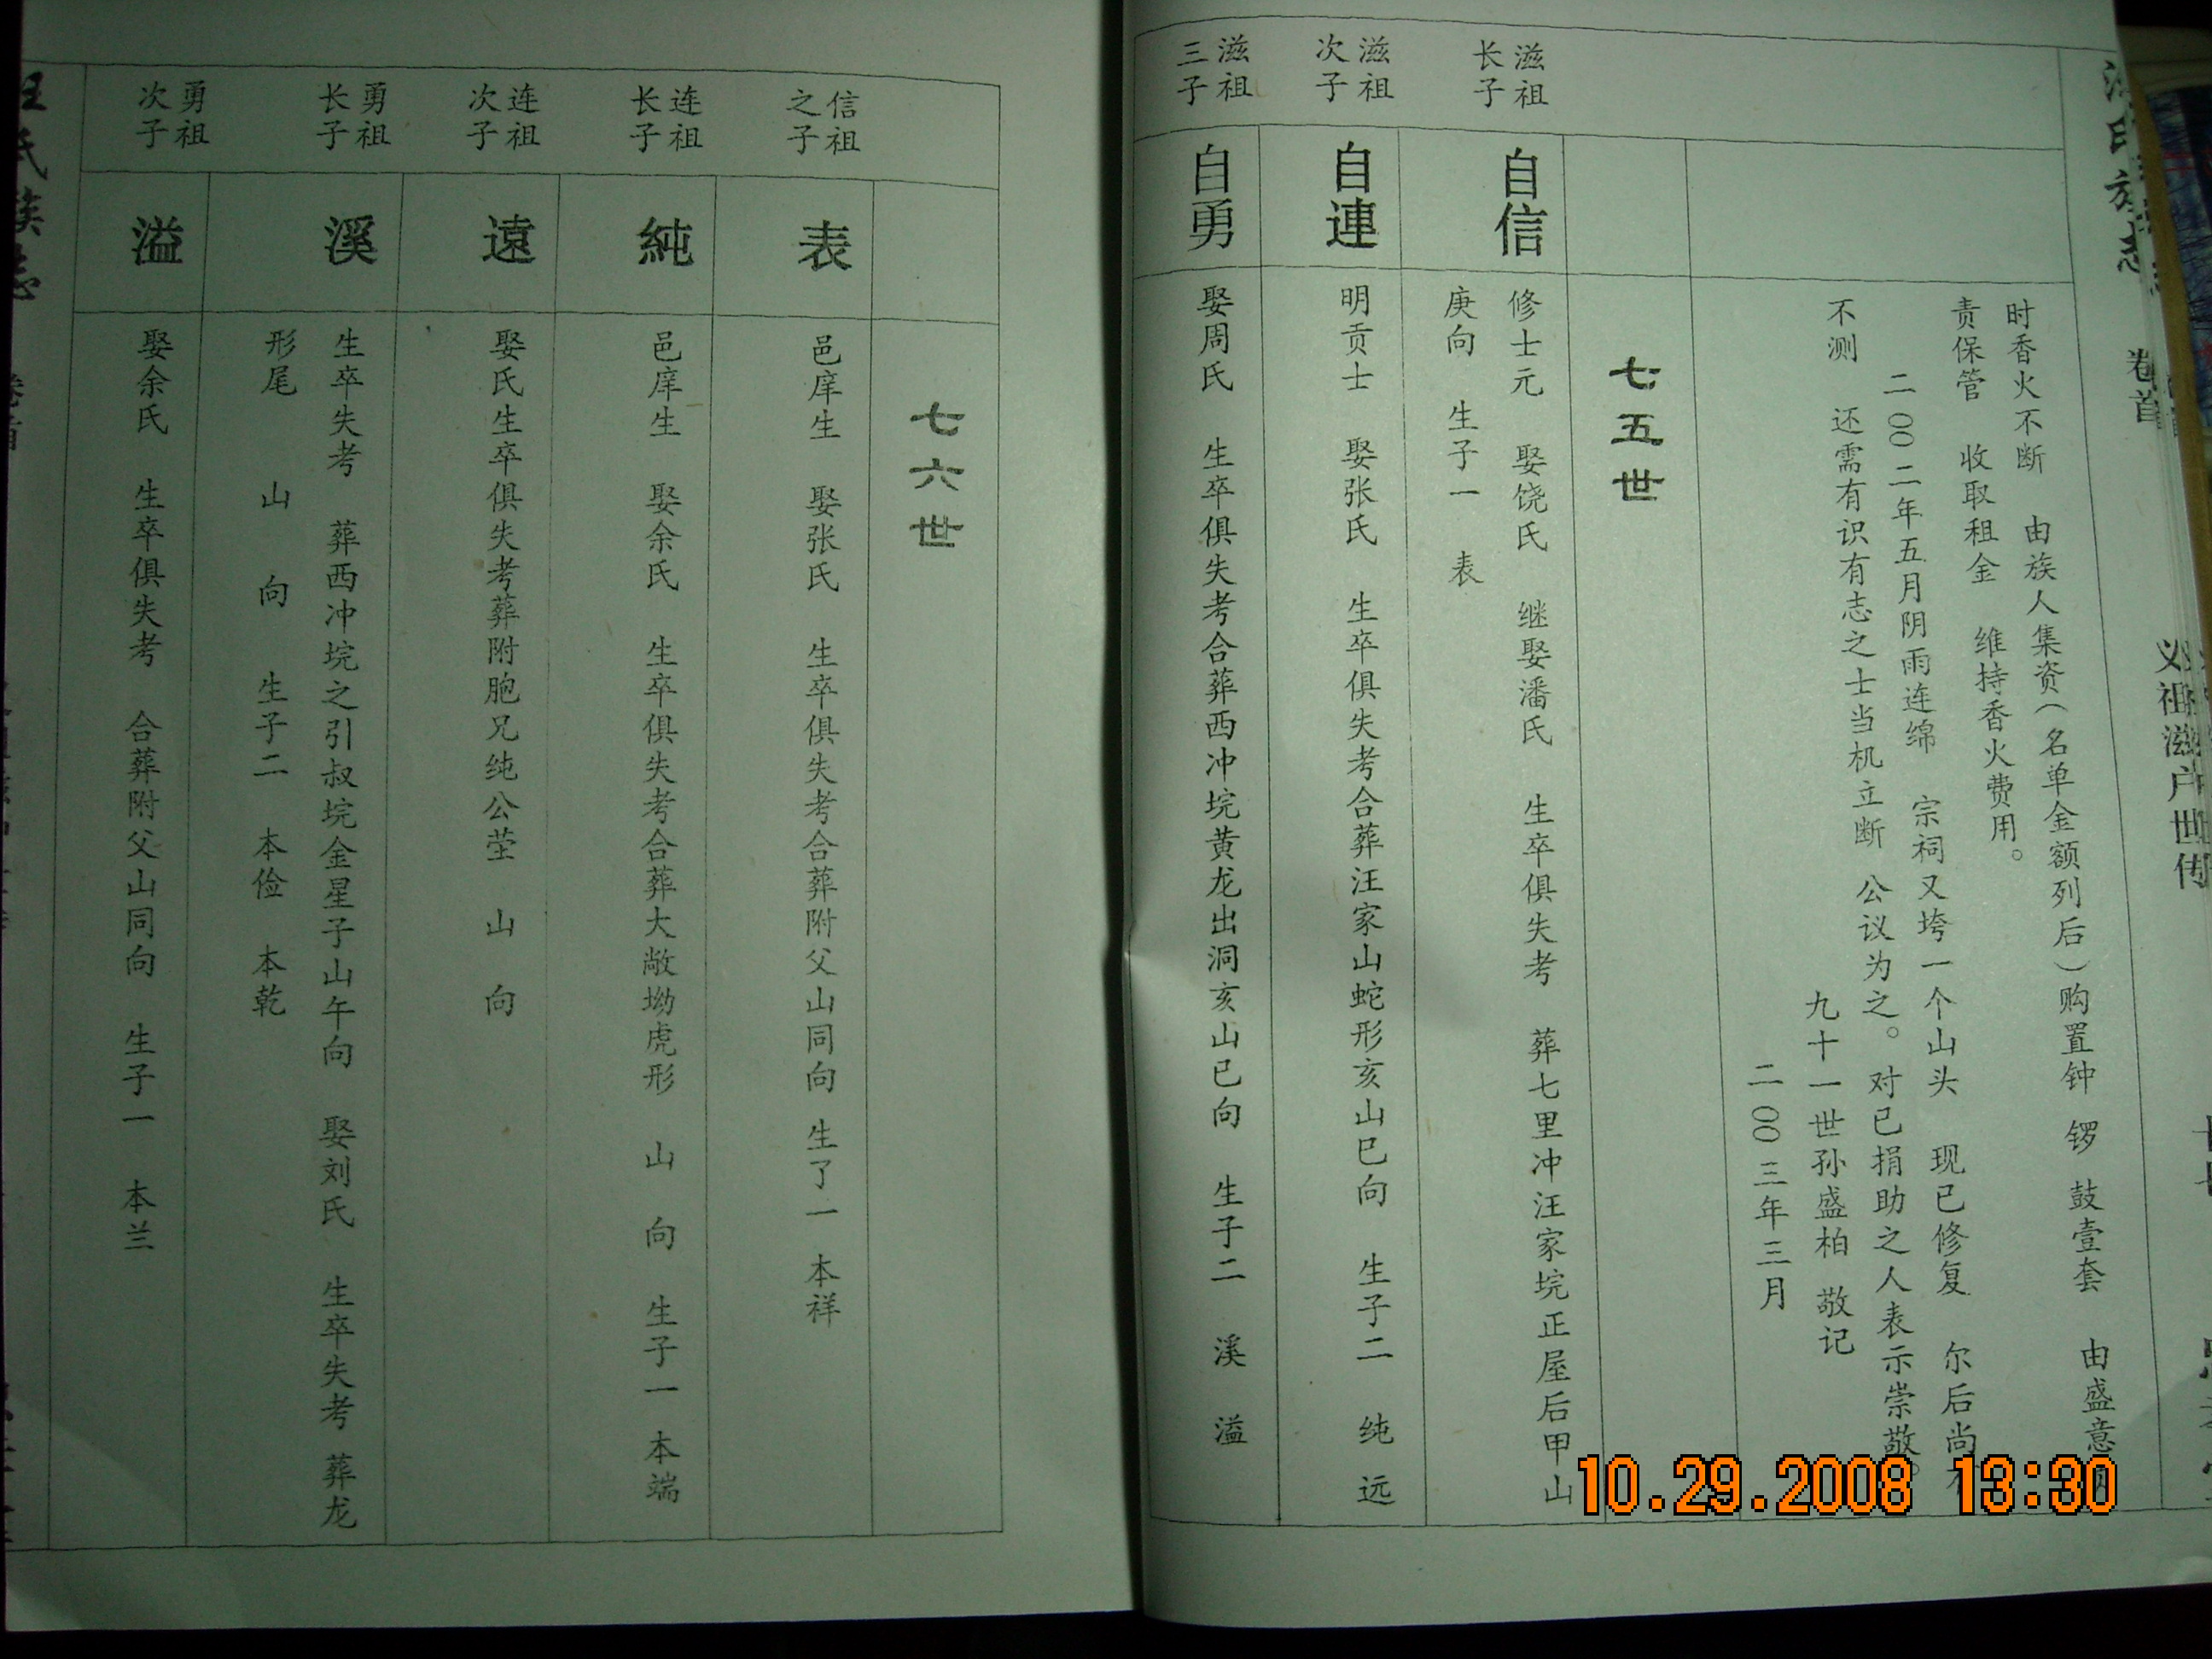 汪氏族志
卷首
义祖滋户世传
时香火不断 由族人集资（名单金额列后）购置钟 锣 鼓壹套 由盛意
责保管 收取租金 维持香火费用。
二00二年五月阴雨连绵 宗祠又垮一个山头 现已修复 尔后尚
不测 还需有识有志之士当机立断 公议为之。对已捐助之人表示崇敬。
九十一世孙盛柏 敬记
二00三年三月
七五世
滋祖
长子
自信
修士元 娶饶氏 继娶潘氏 生卒俱失考 葬七里冲汪家垸正屋后甲山
庚向 生子一 表
滋祖
次子
自連
明贡士 娶张氏 生卒俱失考合葬汪家山蛇形亥山巳向 生子二 纯 远
滋祖
三子
自勇
娶周氏 生卒俱失考合葬西冲垸黄龙出洞亥山已向 生子二 溪 溢
七六世
信祖
之子
表
邑庠生 娶张氏 生卒俱失考合葬附父山同向 生了一 本祥
连祖
长子
純
邑庠生 娶余氏 生卒俱失考合葬大敞坳虎形 山 向 生子一 本端
连祖
次子
遠
娶氏生卒俱失考葬附胞兄纯公茔 山 向
勇祖
长子
溪
生卒失考 葬西冲垸之引叔垸金星子山午向 娶刘氏 生卒失考 葬龙
形尾 山 向 生子二 本俭 本乾
勇祖
次子
溢
娶余氏 生卒俱失考 合葬附父山同向 生子一 本兰
汪氏族志
卷首
10.29.2008 13:30